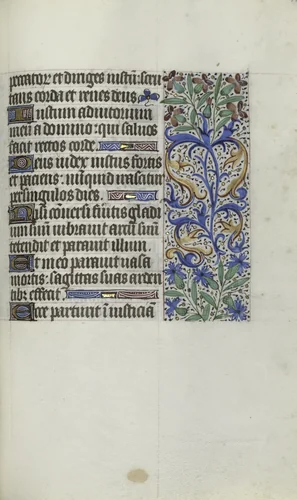 peccator et diriges iustū: scru
tans corda et renes deus
Iustum adiutorium
meū a domino: qui saluos
facit rectos corde.
Deus iudex iustus fortis
et paciens: nūquid irascitur
per singulos dies.
Nisi cōuersi fueritis gladi
um suū uibrauit arcū suū
tetendit et parauit illum.
Et in eo parauit uasa
mortis: sagittas suas arden
tibꝰ effecit.
Ecce parturit iniusticiā